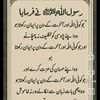 رسول اللہ ﷺ نے فرمایا
جو کوئی اللہ اور آخرت کے دن پر ایمان رکھتا ہو
وہ اپنے پڑوسی کو تکلیف نہ پہنچائے
اور جو کوئی اللہ اور آخرت کے دن پر ایمان رکھتا ہو
وہ اپنے مہمان کی عزت کرے
اور جو کوئی اللہ اور آخرت کے دن پر ایمان رکھتا ہو
وہ اچھی بات زبان سے نکالے ورنہ خاموش